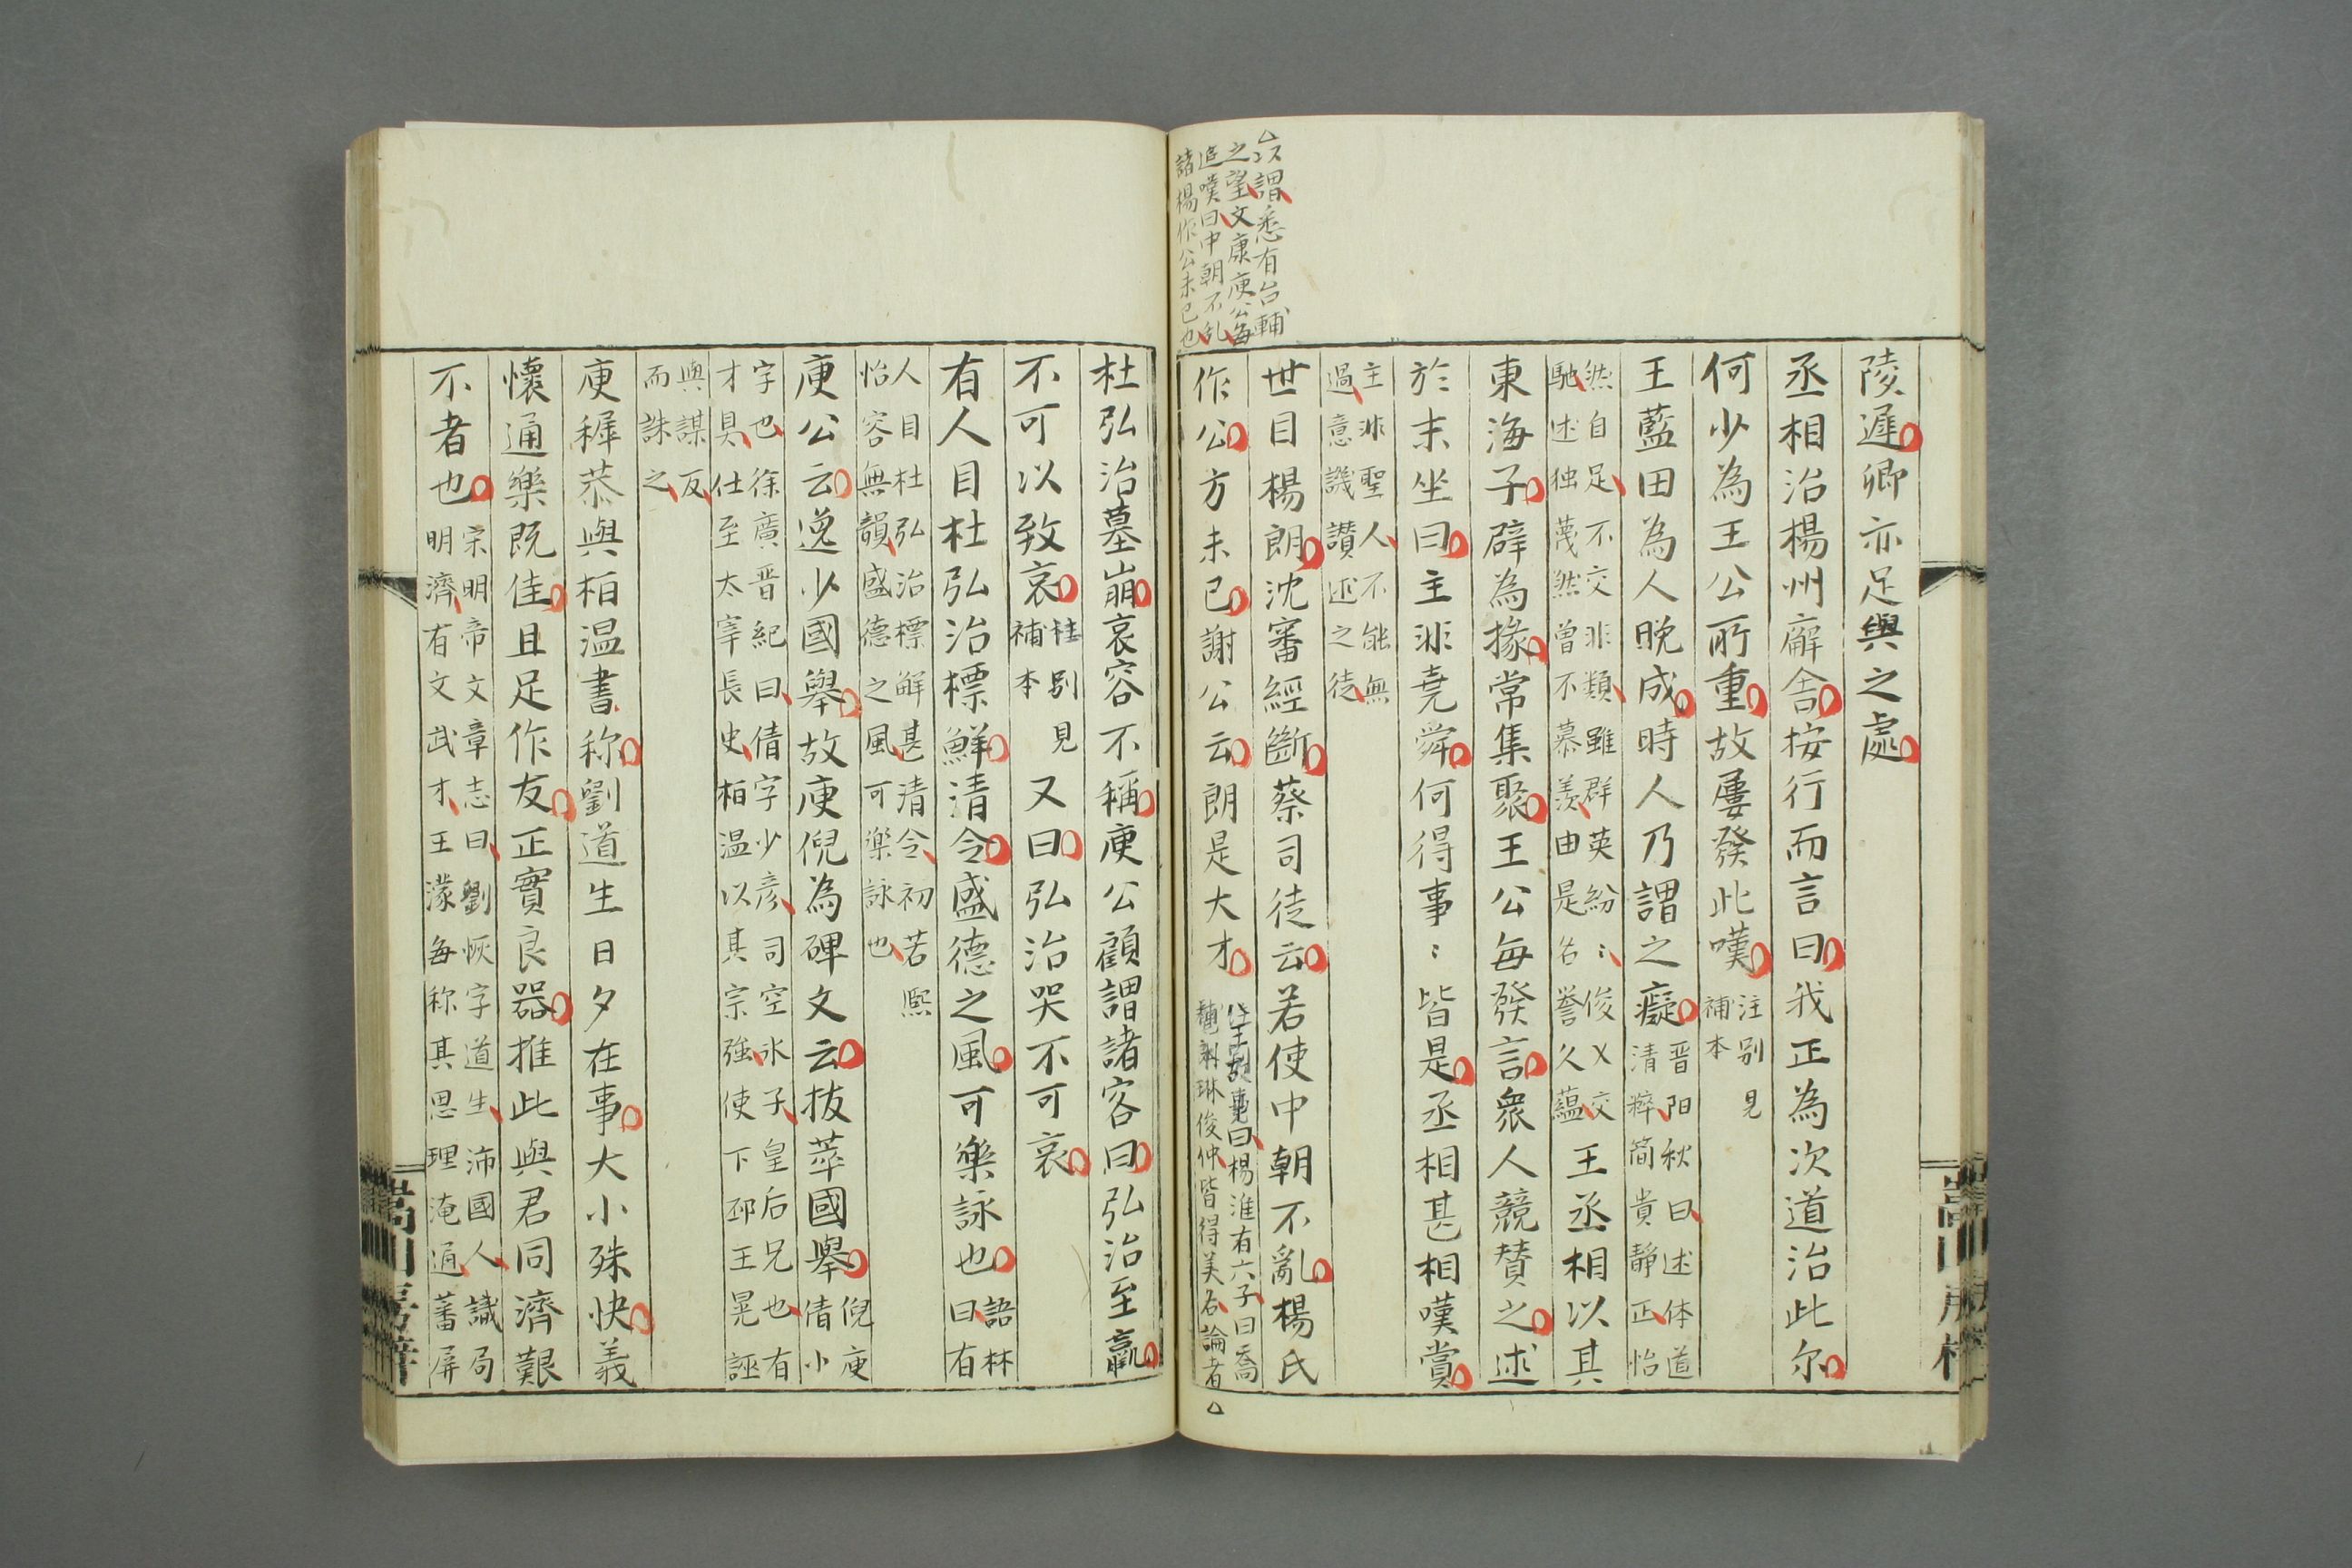 陵遲卿亦足與之處
丞相治楊州廨舍按行而言曰我正為次道治此尔
何少為王公所重故屢發此嘆注別見
補本
王藍田為人晚成時人乃謂之癡晋阳秋曰述体道
清粹簡貴靜正怡
然自足不交非類雖群英紛〻俊乂交
馳述独蔑然曾不慕羡由是名誉久蘊王丞相以其
東海子辟為掾常集聚王公每發言衆人競賛之述
於末坐曰主非尭舜何得事〻皆是丞相甚相嘆賞
主非聖人不能無
過意譏讃述之徒
世目楊朗沈審經斷蔡司徒云若使中朝不亂楊氏
作公方未已謝公云朗是大才
曰楊淮有六子曰喬
琳俊仲皆得美名論者
以謂悉有台輔
之望文康庾公每
追嘆曰中朝不乱
諸楊作公未已也
杜弘治墓崩哀容不稱庾公顧謂諸客曰弘治至羸
不可以致哀注別見
補本又曰弘治哭不可哀
有人目杜弘治標鮮清令盛德之風可樂詠也語林
曰有
人目杜弘治標鮮甚清令初若熙
怡容無韻盛德之風可樂詠也
庾公云逸少國舉故庾倪為碑文云拔萃國舉倪庾
倩小
字也徐廣晋紀曰倩字少彦司空氷子皇后兄也有
才具仕至太宰長史桓温以其宗强使下邳王晃誣
與謀反
而誅之
庾穉恭與桓温書称劉道生日夕在事大小殊快義
懷通樂既佳且足作友正實良器推此與君同濟艱
不者也宋明帝文章志曰劉恢字道生沛國人識局
明濟有文武才王濛每称其思理淹通蕃屏